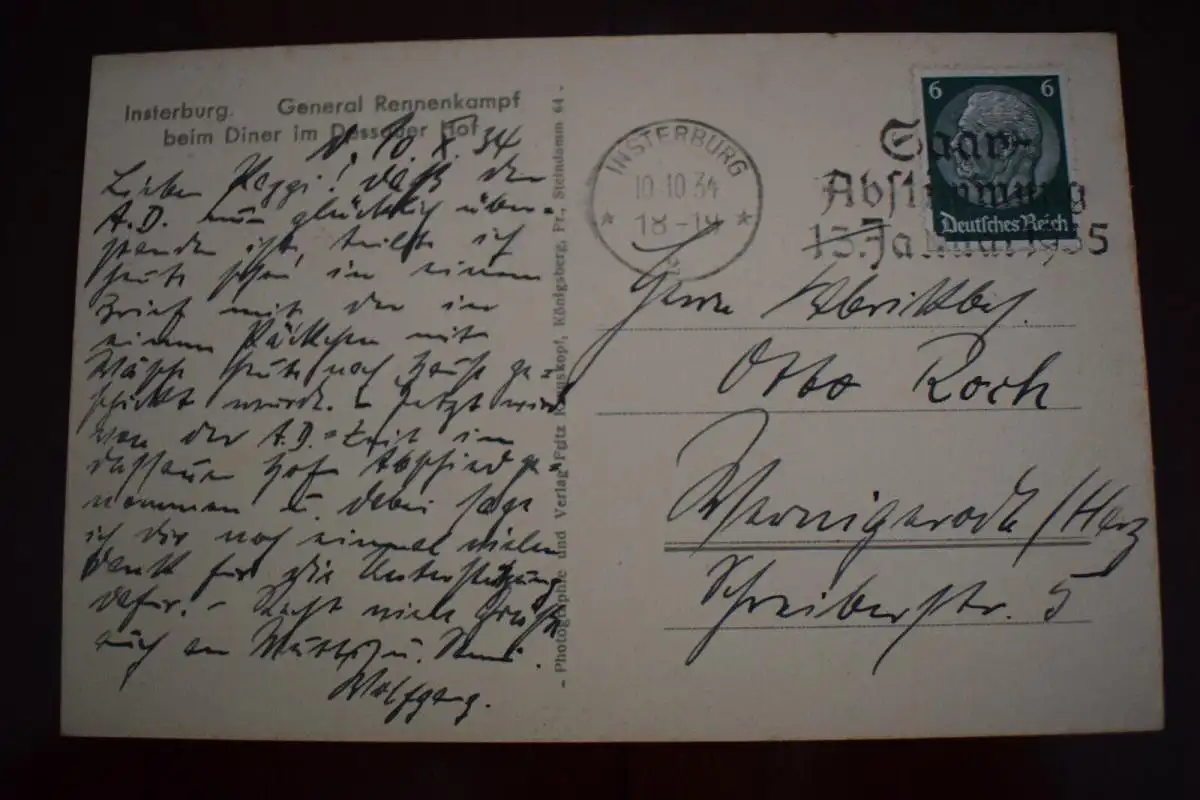 Insterburg. General Rennenkampf
beim Diner im Dessauer Hof
d. 10. X. 34
Lieber Pappi! Daß der
A.D. nun glücklich über-
standen ist, teilte ich
heute schon in einem
Brief mit der in
einem Päckchen mit
Wäsche heute nach Hause ge-
schickt wurde. – Jetzt wird
von der A.D.=Zeit im
Dessauer Hof Abschied ge-
nommen u. dabei sage
ich dir noch einmal vielen
Dank für die Unterstützung
dafür. – Recht viele Grüße
auch an Mutti u.
Wolfgang.
- Photographie und Verlag Fritz Krauskopf, Königsberg, Pr., Steindamm 64 -
INSTERBURG
10.10.34
18-19
Saar-
Abstimmung
13. Januar 1935
6 6
Deutsches Reich
Herrn
Otto Roch
Wernigerode/Harz
Schreiberstr. 5